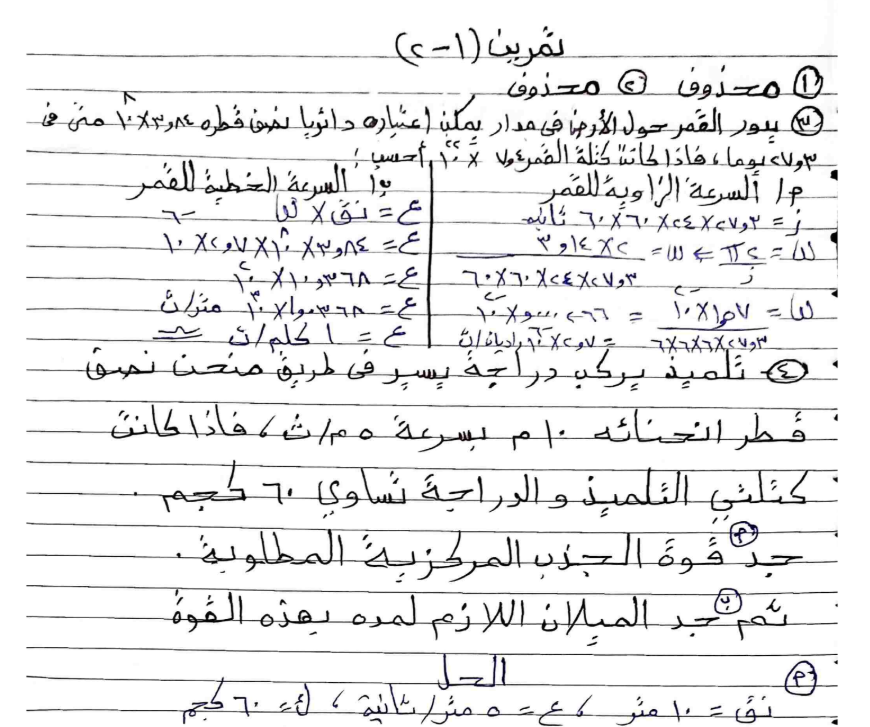 تمرين (١-٢)
① محذوف ② محذوف
③ يدور القمر حول الأرض في مدار يمكن اعتباره دائريا نصف قطره ٣,٨٤ × ١٠^٨ متر في
٢٧,٣ يوما، فاذا كانت كتلة القمر ٧,٤ × ١٠^٢٢ أحسب :
أ/ السرعة الزاوية للقمر
ز = ٢٧,٣ × ٢٤ × ٦٠ × ٦٠ ثانيه
ω = ٢π/ز ⇐ ω = ٢ × ٣,١٤ / ٢٧,٣ × ٢٤ × ٦٠ × ٦٠
ω = ١٠^-٢ × ١,٥٧ / ٢٧,٣ × ٦ × ٦ × ٦ = ٠,٠٠٠٢٦٦ × ١٠^-٢
= ٢,٧ × ١٠^-٦ راديان/ث
ب/ السرعة الخطية للقمر
ع = نق × ω
ع = ٣,٨٤ × ١٠^٨ × ٢,٧ × ١٠^-٦
ع = ١٠,٣٦٨ × ١٠^٢
ع = ١,٠٣٦٨ × ١٠^٣ متر/ث
ع = ١ كلم/ث
④ تلميذ يركب دراجة يسير في طريق منحن نصق
قطر انحنائه ١٠ م بسرعة ٥ م/ث، فاذا كانت
كتلتي التلميذ و الدراجة تساوي ٦٠ كجم .
أ جد قوة الجذب المركزية المطلوبة .
ثم ب جد الميلان اللازم لمده بهذه القوة
الحل
أ
نق = ١٠ متر ، ع = ٥ متر/ثانية ، ك = ٦٠ كجم